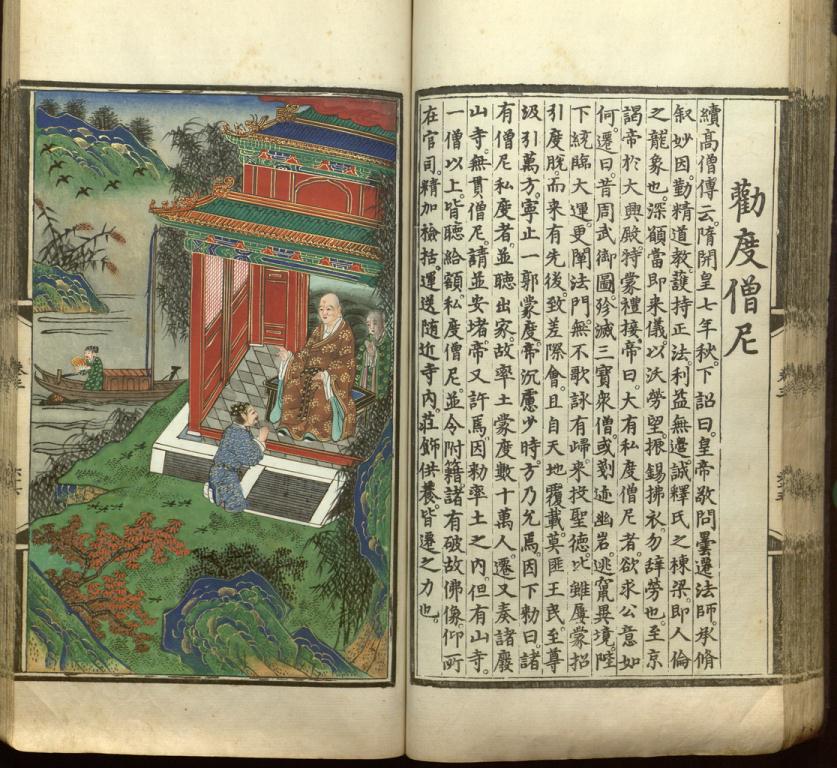 勸度僧尼
續高僧傳云。隋開皇七年秋。下詔曰。皇帝敬問曇遷法師。承脩
叙妙因。勤精道教。護持正法。利益無邊。誠釋氏之棟梁。即人倫
之龍象也。深願當即来儀。以沃勞望。振錫拂衣。勿辭勞也。至京
謁帝於大興殿。特蒙禮接。帝曰。大有私度僧尼者。欲求公意如
何。遷曰。昔周武御圖。殄滅三寶。衆僧或剗迹幽岩。逃竄異境。陛
下統臨大運。更闡法門。無不歌詠有歸。来投聖德。比雖屢蒙招
引度脫。而来有先後。致差際會。且自天地覆載。莫匪王民。至尊
汲引萬方。寧止一郭蒙度。帝沉慮少時。方乃允焉。因下勑曰。諸
有僧尼私度者。並聽出家。故率土蒙度數十萬人。遷又奏諸廢
山寺。無貫僧尼。請並安堵。帝又許焉。因勑率土之内。但有山寺。
一僧以上。皆聽給額。私度僧尼。並令附籍。諸有破故佛像。仰所
在官司。精加檢括。運送随近寺内。莊飾供養。皆遷之力也。